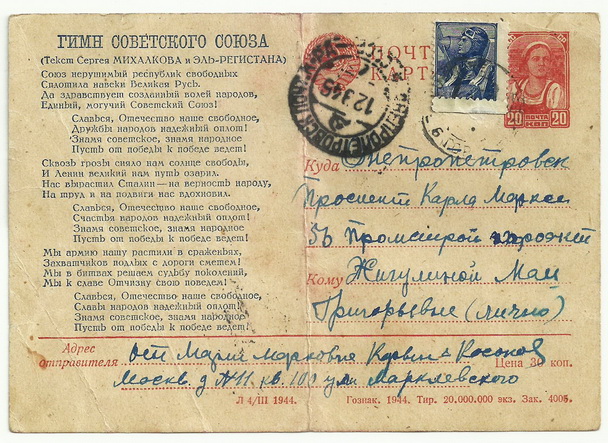 ГИМН СОВЕТСКОГО СОЮЗА
(Текст Сергея МИХАЛКОВА и ЭЛЬ-РЕГИСТАНА)
Союз нерушимый республик свободных
Сплотила навеки Великая Русь.
Да здравствует созданный волей народов,
Единый, могучий Советский Союз!
Славься, Отечество наше свободное,
Дружбы народов надежный оплот!
Знамя советское, знамя народное
Пусть от победы к победе ведет!
Сквозь грозы сияло нам солнце свободы,
И Ленин великий нам путь озарил.
Нас вырастил Сталин — на верность народу,
На труд и на подвиги нас вдохновил.
Славься, Отечество наше свободное,
Счастья народов надежный оплот!
Знамя советское, знамя народное
Пусть от победы к победе ведет!
Мы армию нашу растили в сраженьях,
Захватчиков подлых с дороги сметем!
Мы в битвах решаем судьбу поколений,
Мы к славе Отчизну свою поведем!
Славься, Отечество наше свободное,
Славы народов надежный оплот!
Знамя советское, знамя народное
Пусть от победы к победе ведет!
ПОЧТО
КАРТ
12 3 45
ДНЕПРОПЕТРОВСК
20 ПОЧТА 20
Куда Днепропетровск
Проспект Карла Маркса
56 Промстрой
Кому Жигулиной Маи
Григорьевне (лично)
Адрес
отправителя
Мария Марковна
Москва д №11 кв. 100 ул Мархлевского
Цена 30 коп.
Л 4/III 1944.
Гознак. 1944. Тир. 20.000.000 экз. Зак. 4005.